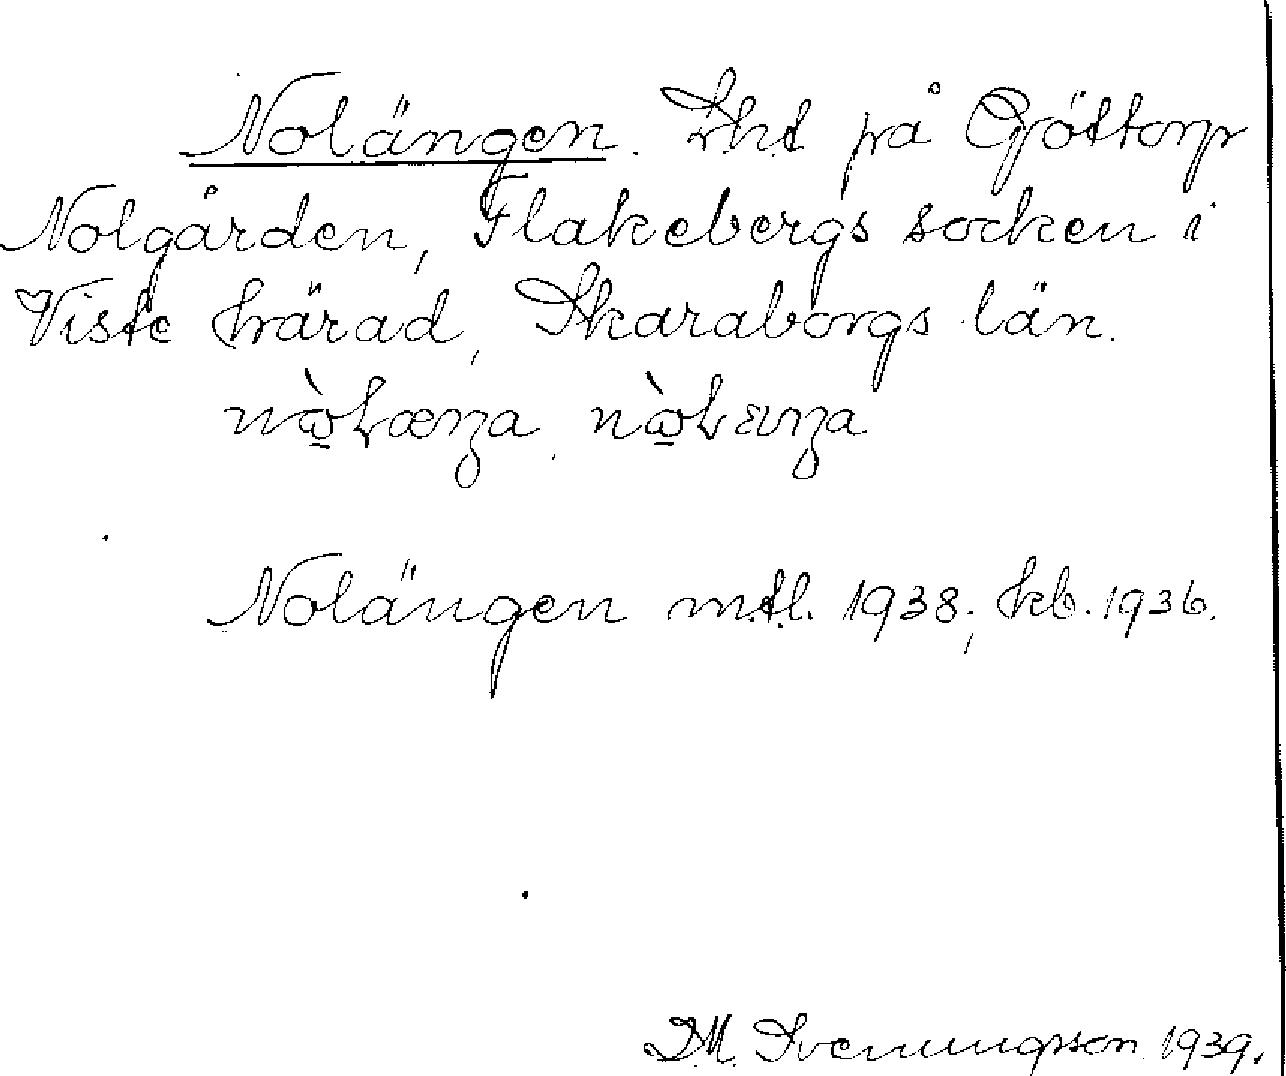 Nolängen. Lht på Gröttorp
Nolgården, Flakebergs socken i
Viste härad, Skaraborgs län.
Nolängen mtl. 1938; kb. 1936.
D.M. Svenungsson 1939.